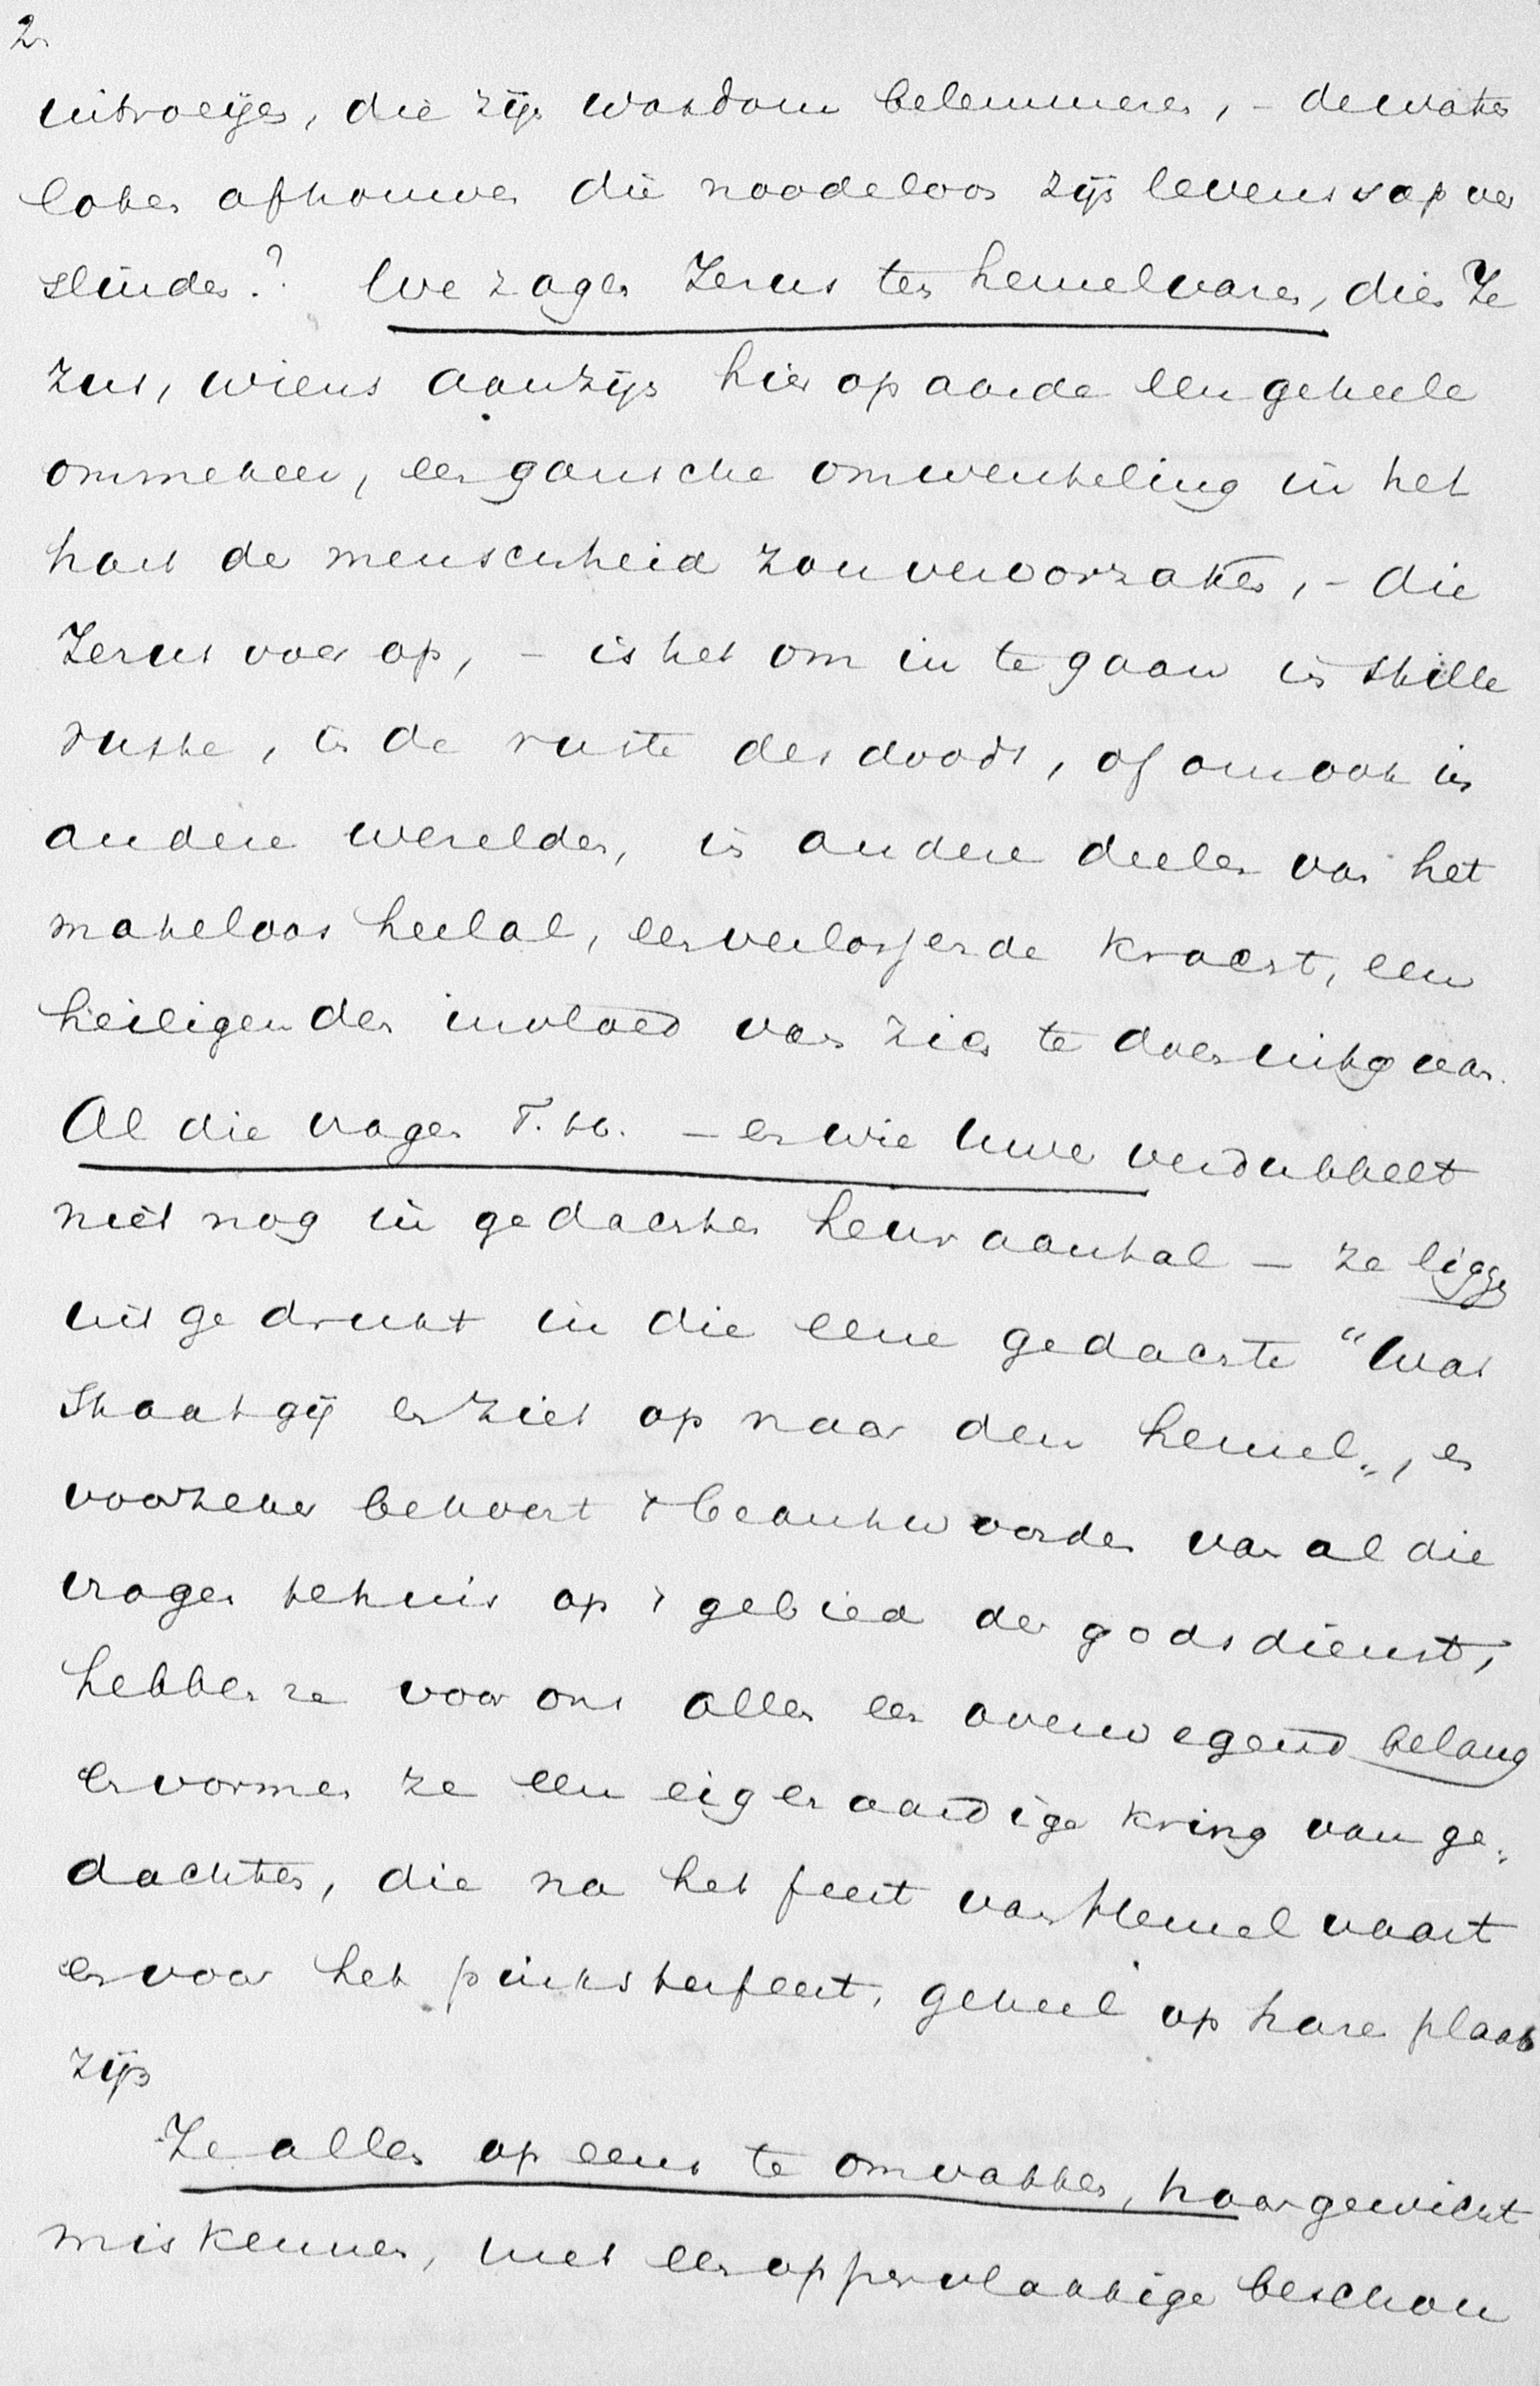 2.
uitroeijen, die zijn wasdom belemmeren, – de waterloten
loten afhouwen die noodeloos zijn levenssap ver
slinden? We zagen Jezus ten hemelvaren, dien Je
zus, wiens aanzijn hier op aarde een geheele
ommekeer, een gansche omwenteling in het
hart der menschheid zou veroorzaken, – die
Jezus voer op, – is het om in te gaan in stille
ruste, in de ruste des doods, of om ook in
andere werelden, in andere deelen van het
mateloos heelal, een verlossende kracht, een
heiligenden invloed van zich te doen uitgaan.
Al die vragen T. h. – en wie Uwer verdubbelt
niet nog in gedachten heur aantal – ze liggen
uitgedrukt in die eene gedachte "Wat
staat gij en ziet op naar den hemel", en
voorzeker behoort 't beantwoorden van al die
vragen tehuis op 't gebied der godsdienst,
hebben ze voor ons allen een overwegend belang
en vormen ze een eigenaardige kring van ge„
dachten, die na het feest van Hemelvaart
en voor het pinksterfeest, geheel op hare plaats
zijn
Ze allen op eens te omvatten, haar gewicht
miskennen, met een oppervlakkige beschou